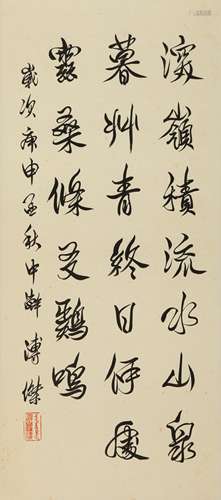 深嶺積流水山泉
暮艸青終日處
桑條交鷄鳴
歲次庚申孟秋中澣 溥傑